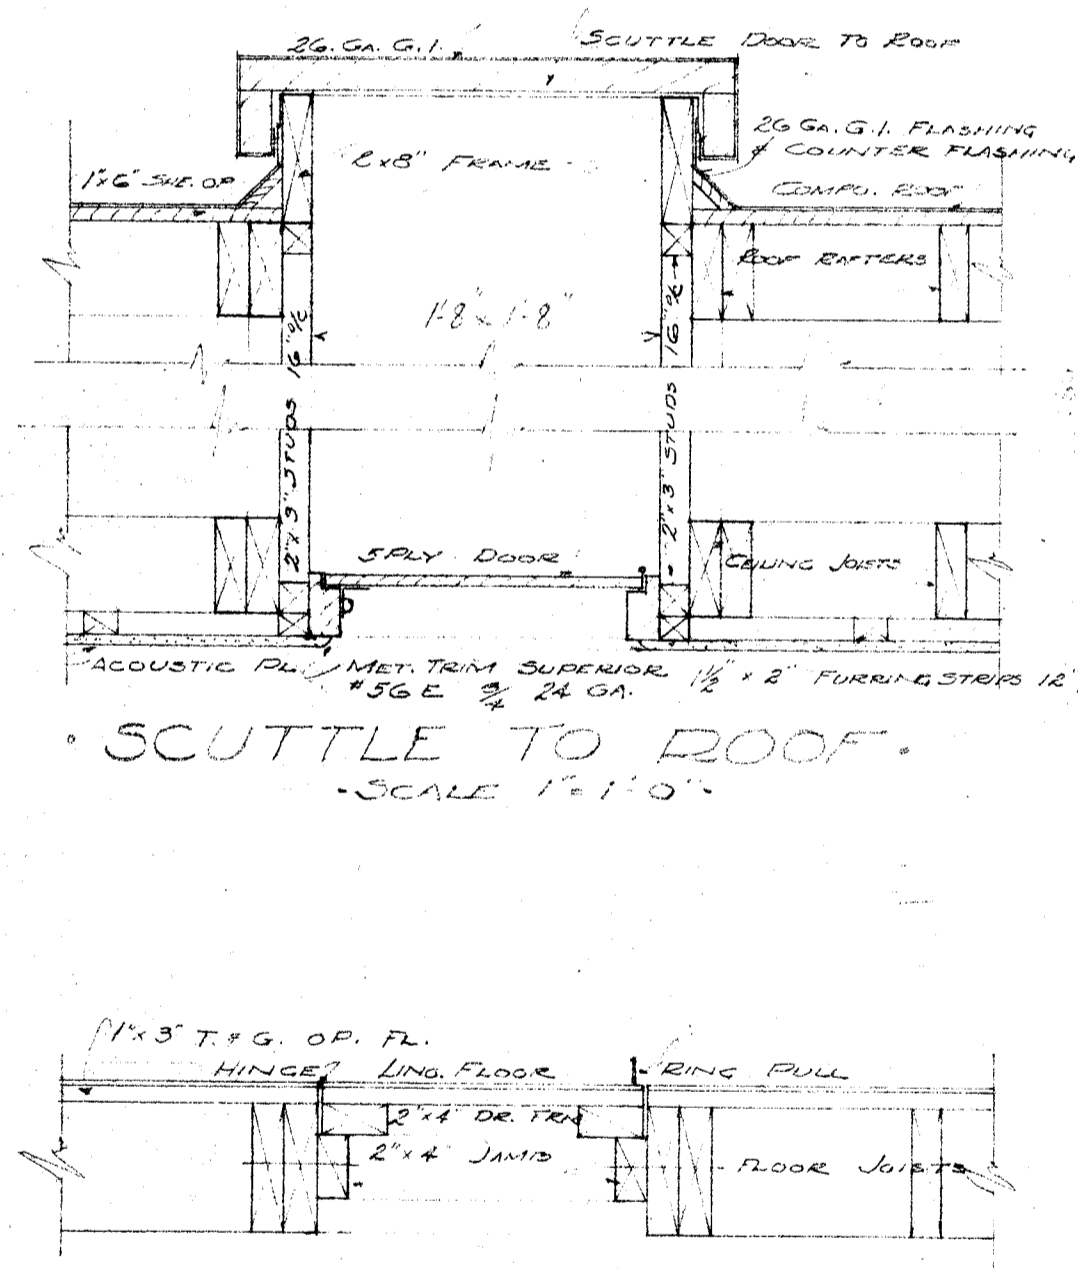 26. GA. G.I.
SCUTTLE DOOR TO ROOF
26 GA. G.I. FLASHING
& COUNTER FLASHING
2x8" FRAME
1"x6" SHE. OP
COMPO. ROOF
ROOF RAFTERS
1'-8" x 1'-8"
2"x3" STUDS 16" o/c
2"x3" STUDS 16" o/c
5 PLY DOOR
CEILING JOISTS
ACOUSTIC PL.
MET. TRIM SUPERIOR
#56 E 3/4 24 GA.
1 1/2" x 2" FURRING STRIPS 12"
• SCUTTLE TO ROOF •
- SCALE 1" = 1'-0" -
1"x3" T. & G. OP. FL.
HINGE
LINO. FLOOR
RING PULL
2"x4" DR. FRM
2"x4" JAMB
FLOOR JOISTS